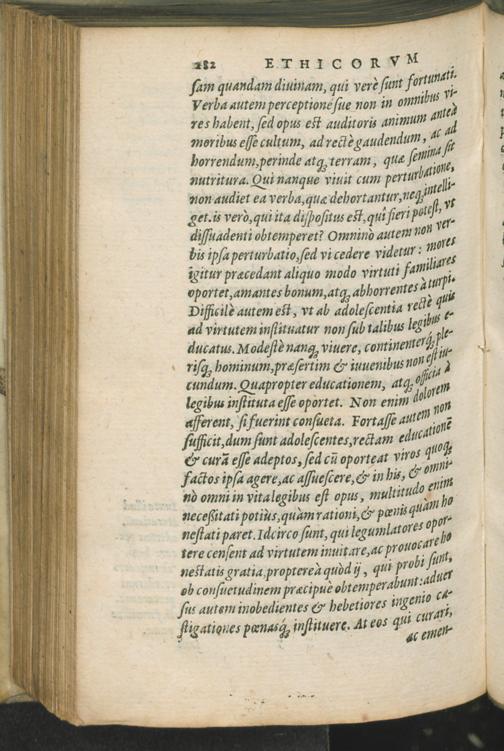 282 ETHICORVM
sam quandam diuinam, qui verè sunt fortunati.
Verba autem perceptionésue non in omnibus vi-
res habent, sed opus est auditoris animum anteà
moribus esse cultum, ad rectè gaudendum, ac ad
horrendum, perinde atq; terram, quæ semina sit
nutritura. Qui nanque viuit cum perturbatione,
non audiet ea verba, quæ dehortantur, neq; intelli-
get. is verò, qui ita dispositus est, quî fieri potest, vt
dissuadenti obtemperet? Omninò autem non ver-
bis ipsa perturbatio, sed vi cedere videtur: mores
igitur præcedant aliquo modo virtuti familiares
oportet, amantes bonum, atq; abhorrentes à turpi.
Difficilè autem est, vt ab adolescentia rectè quis
ad virtutem instituatur non sub talibus legibus e-
ducatus. Modestè nanq; viuere, continenterq́; ple-
risq; hominum, præsertim & iuuenibus non est iu-
cundum. Quapropter educationem, atq; officia à
legibus instituta esse oportet. Non enim dolorem
afferent, si fuerint consueta. Fortasse autem non
sufficit, dum sunt adolescentes, rectam educationē
& curā esse adeptos, sed cū oporteat viros quoq;
factos ipsa agere, ac assuescere, & in his, & omni-
nò omni in vita legibus est opus, multitudo enim
necessitati potiùs, quàm rationi, & pœnis quàm ho
nestati paret. Idcirco sunt, qui legumlatores opor-
tere censent ad virtutem inuitare, ac prouocare ho
nestatis gratia, proptereà quòd ij, qui probi sunt,
ob consuetudinem præcipuè obtemperabunt: aduer
sus autem inobedientes & hebetiores ingenio ca-
stigationes pœnasq́; instituere. At eos qui curari,
ac emen-